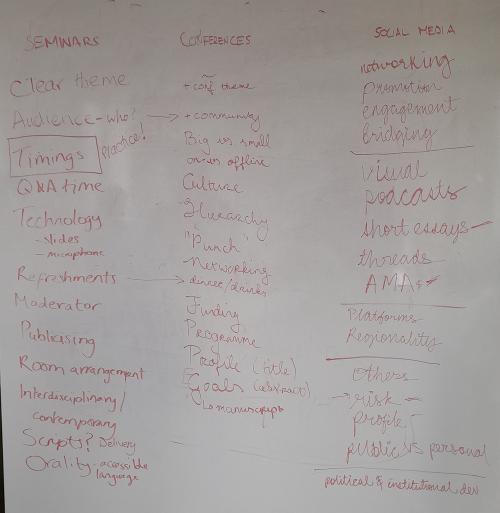 SEMINARS
Clear theme
Audience - who?
Timings practice!
Q&A time
Technology
- slides
- microphone
Refreshments
Moderator
Publicising
Room arrangement
Interdisciplinary/
contemporary
Scripts? Delivery
Orality - accessible
language
CONFERENCES
+ conf theme
+ community
Big vs small
on vs offline
Culture
Hierarchy
"Punch"
Networking
dinner/drinks
Funding
Programme
Profile (title)
Goals (abstract)
manuscript
SOCIAL MEDIA
networking
promotion
engagement
bridging
visual
podcasts
short essays
threads
AMAs
Platforms
Regionality
Others
risk
profile
public vs personal
political & institutional dev